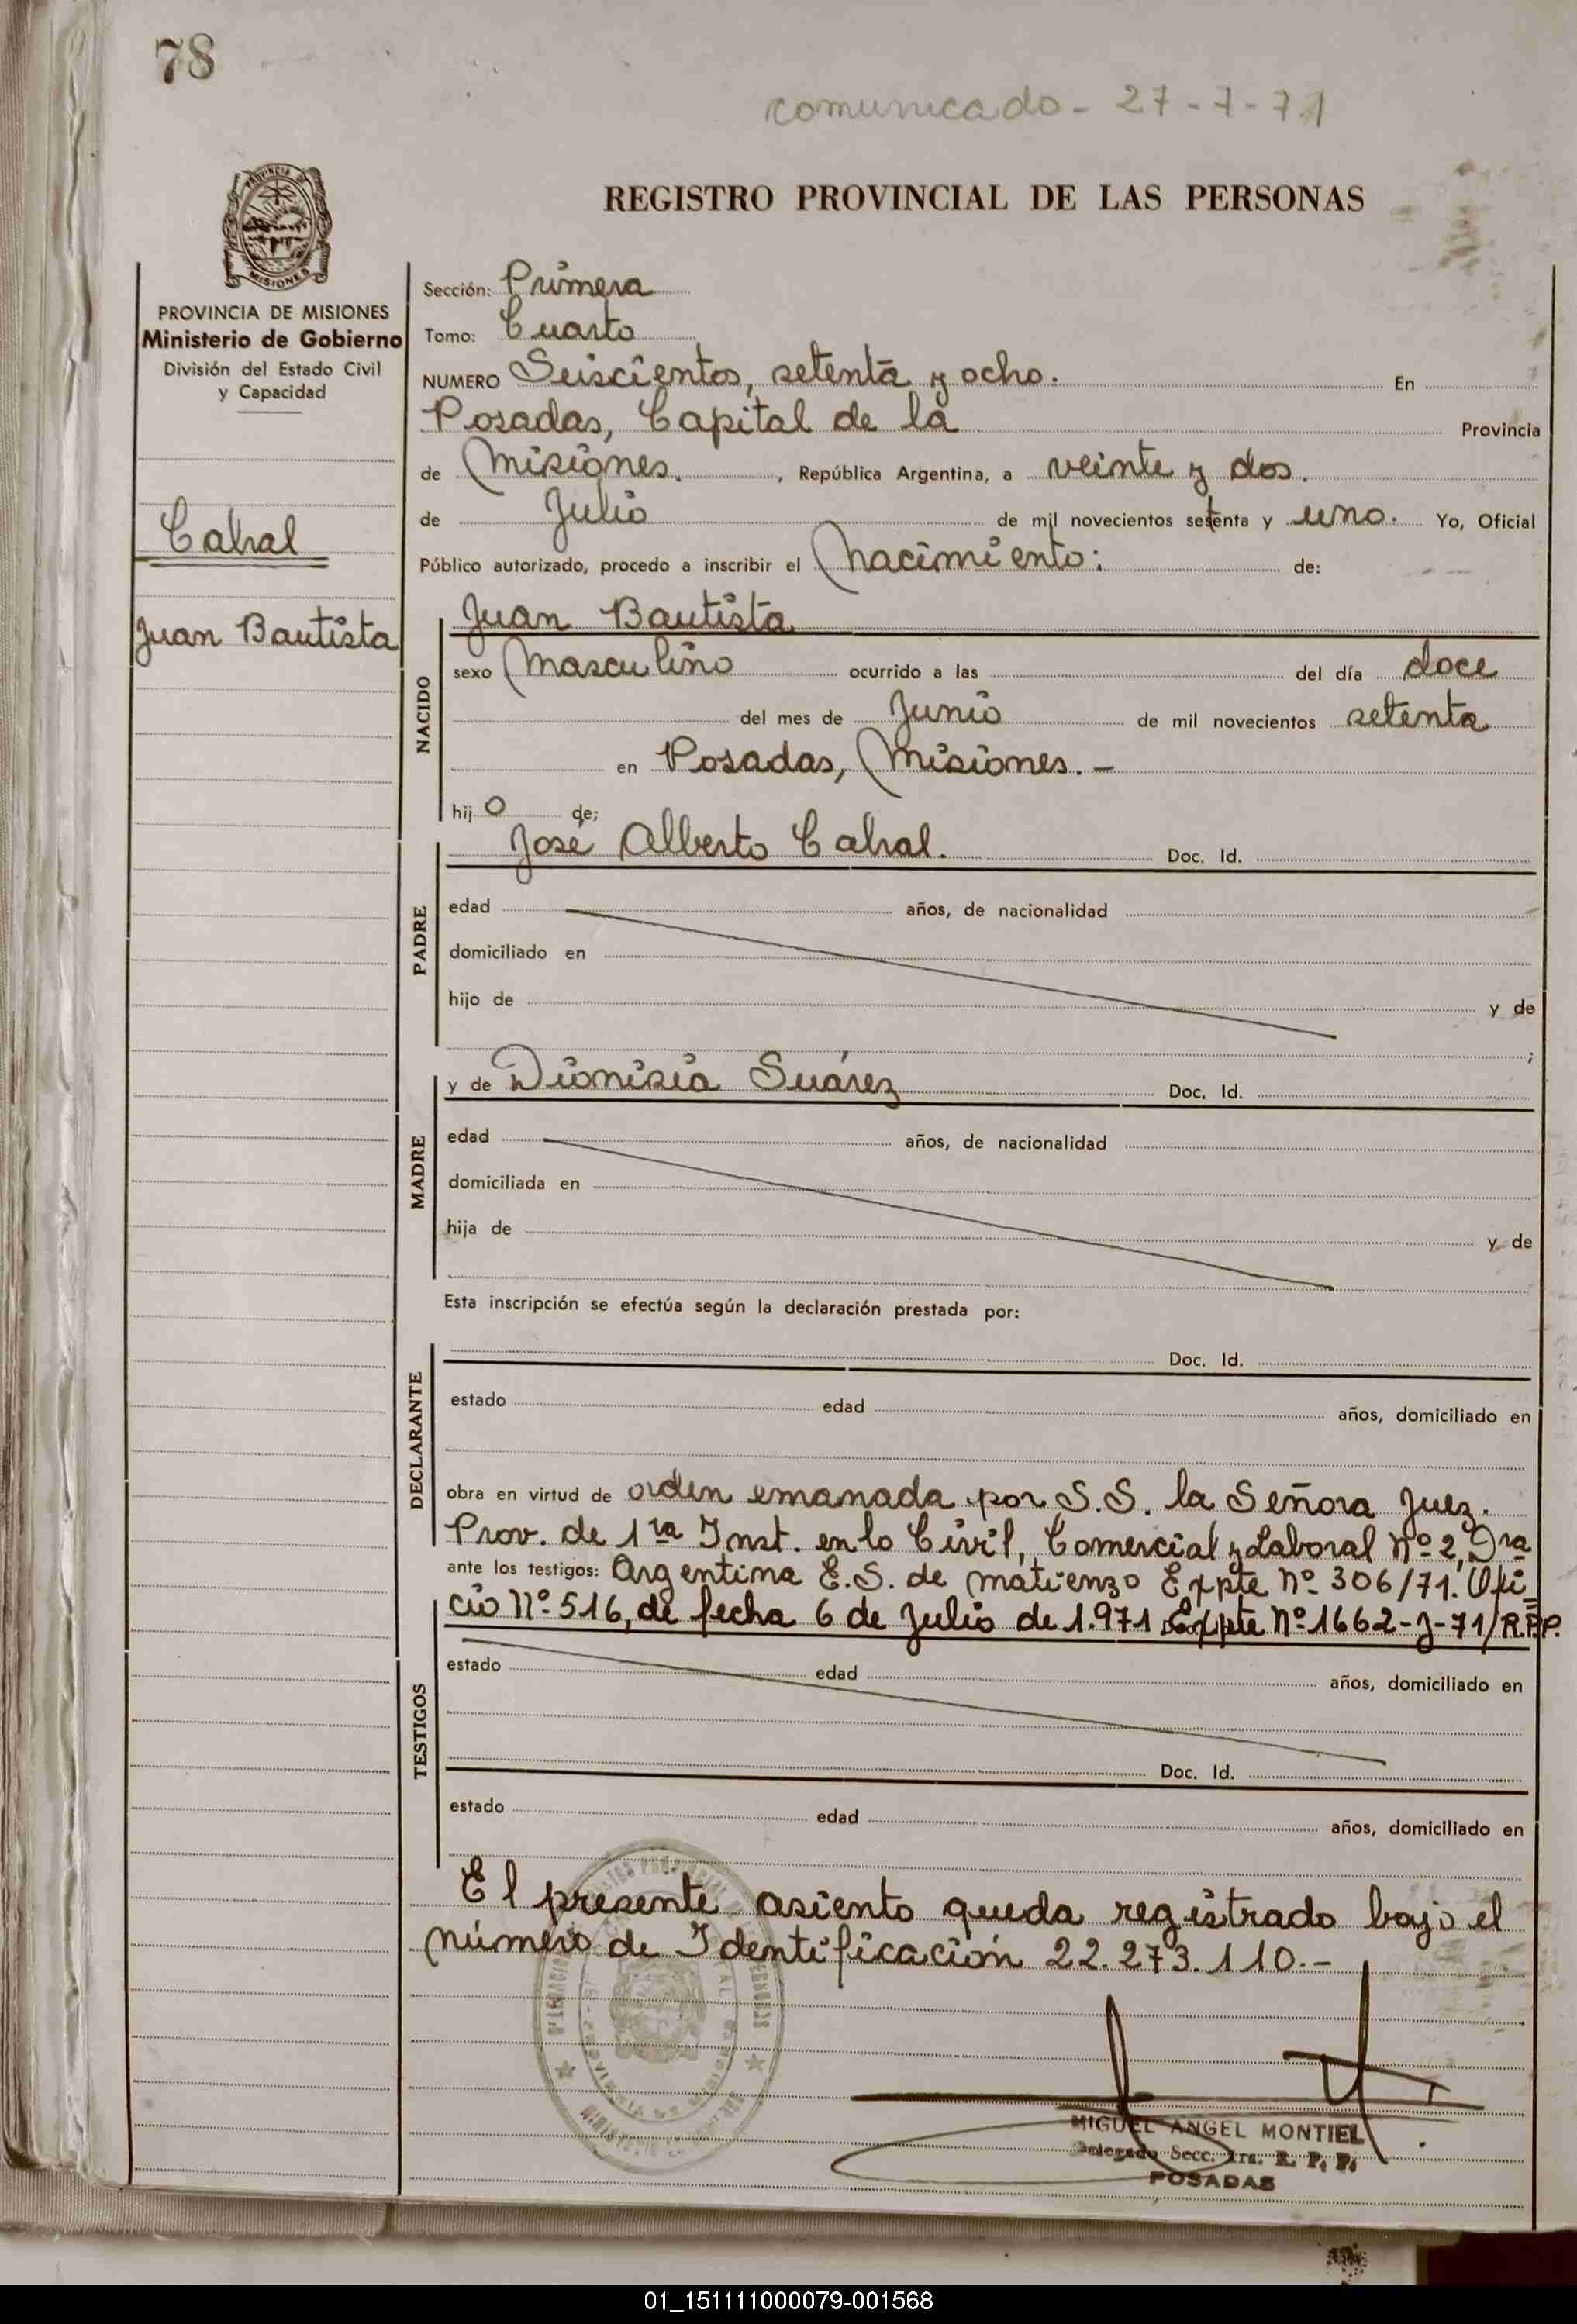 78
comunicado - 27-7-71
PROVINCIA DE MISIONES
REGISTRO PROVINCIAL DE LAS PERSONAS
PROVINCIA DE MISIONES
Ministerio de Gobierno
División del Estado Civil
y Capacidad
Cabral
Juan Bautista
Sección: Primera
Tomo: Cuarto
NUMERO Seiscientos, setenta y ocho. En
Posadas, Capital de la Provincia
de Misiones. , República Argentina, a veinte y dos.
de Julio de mil novecientos setenta y uno. Yo, Oficial
Público autorizado, procedo a inscribir el Nacimiento: de:
NACIDO
Juan Bautista
sexo Masculino ocurrido a las del día doce
del mes de Junio de mil novecientos setenta
en Posadas, Misiones. -
hijo de;
PADRE
José Alberto Cabral. Doc. Id.
edad años, de nacionalidad
domiciliado en
hijo de y de
;
MADRE
y de Dionisia Suárez Doc. Id.
edad años, de nacionalidad
domiciliada en
hija de y de
Esta inscripción se efectúa según la declaración prestada por:
DECLARANTE
Doc. Id.
estado edad años, domiciliado en
obra en virtud de orden emanada por S.S. la Señora Juez.
Prov. de 1ra Inst. en lo Civil, Comercial y Laboral Nº 2, Dra
ante los testigos: Argentina E.S. de Matienzo Expte Nº 306/71. Ofi=
cio Nº 516, de fecha 6 de Julio de 1.971 Expte Nº 1662-J-71/R.P.P.
TESTIGOS
estado edad años, domiciliado en
Doc. Id.
estado edad años, domiciliado en
El presente asiento queda registrado bajo el
número de Identificación 22.273.110.-
MIGUEL ANGEL MONTIEL
Delegado Secc. 1ra. R. P. P.
POSADAS
01_151111000079-001568